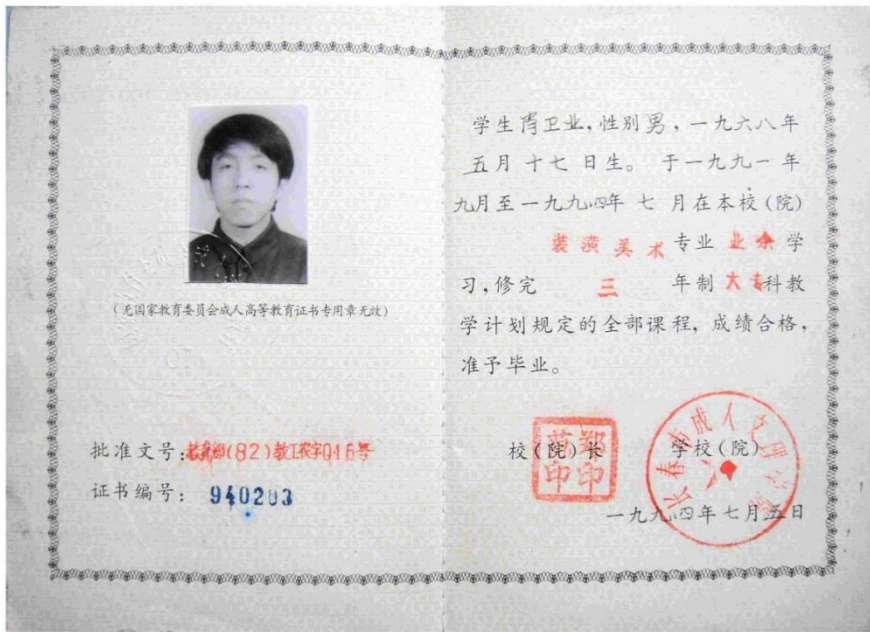 (无国家教育委员会成人高等教育证书专用章无效)
批准文号:教工农字(82)016号
证书编号: 940203
学生肖卫业,性别男,一九六八年
五月十七日生。于一九九一年
九月至一九九四年七月在本校(院)
装潢美术专业业余学
习,修完 三 年制大专科教
学计划规定的全部课程,成绩合格,
准予毕业。
校(院)长
郑印
印
学校(院)
长春市成人文理学院
一九九四年七月五日